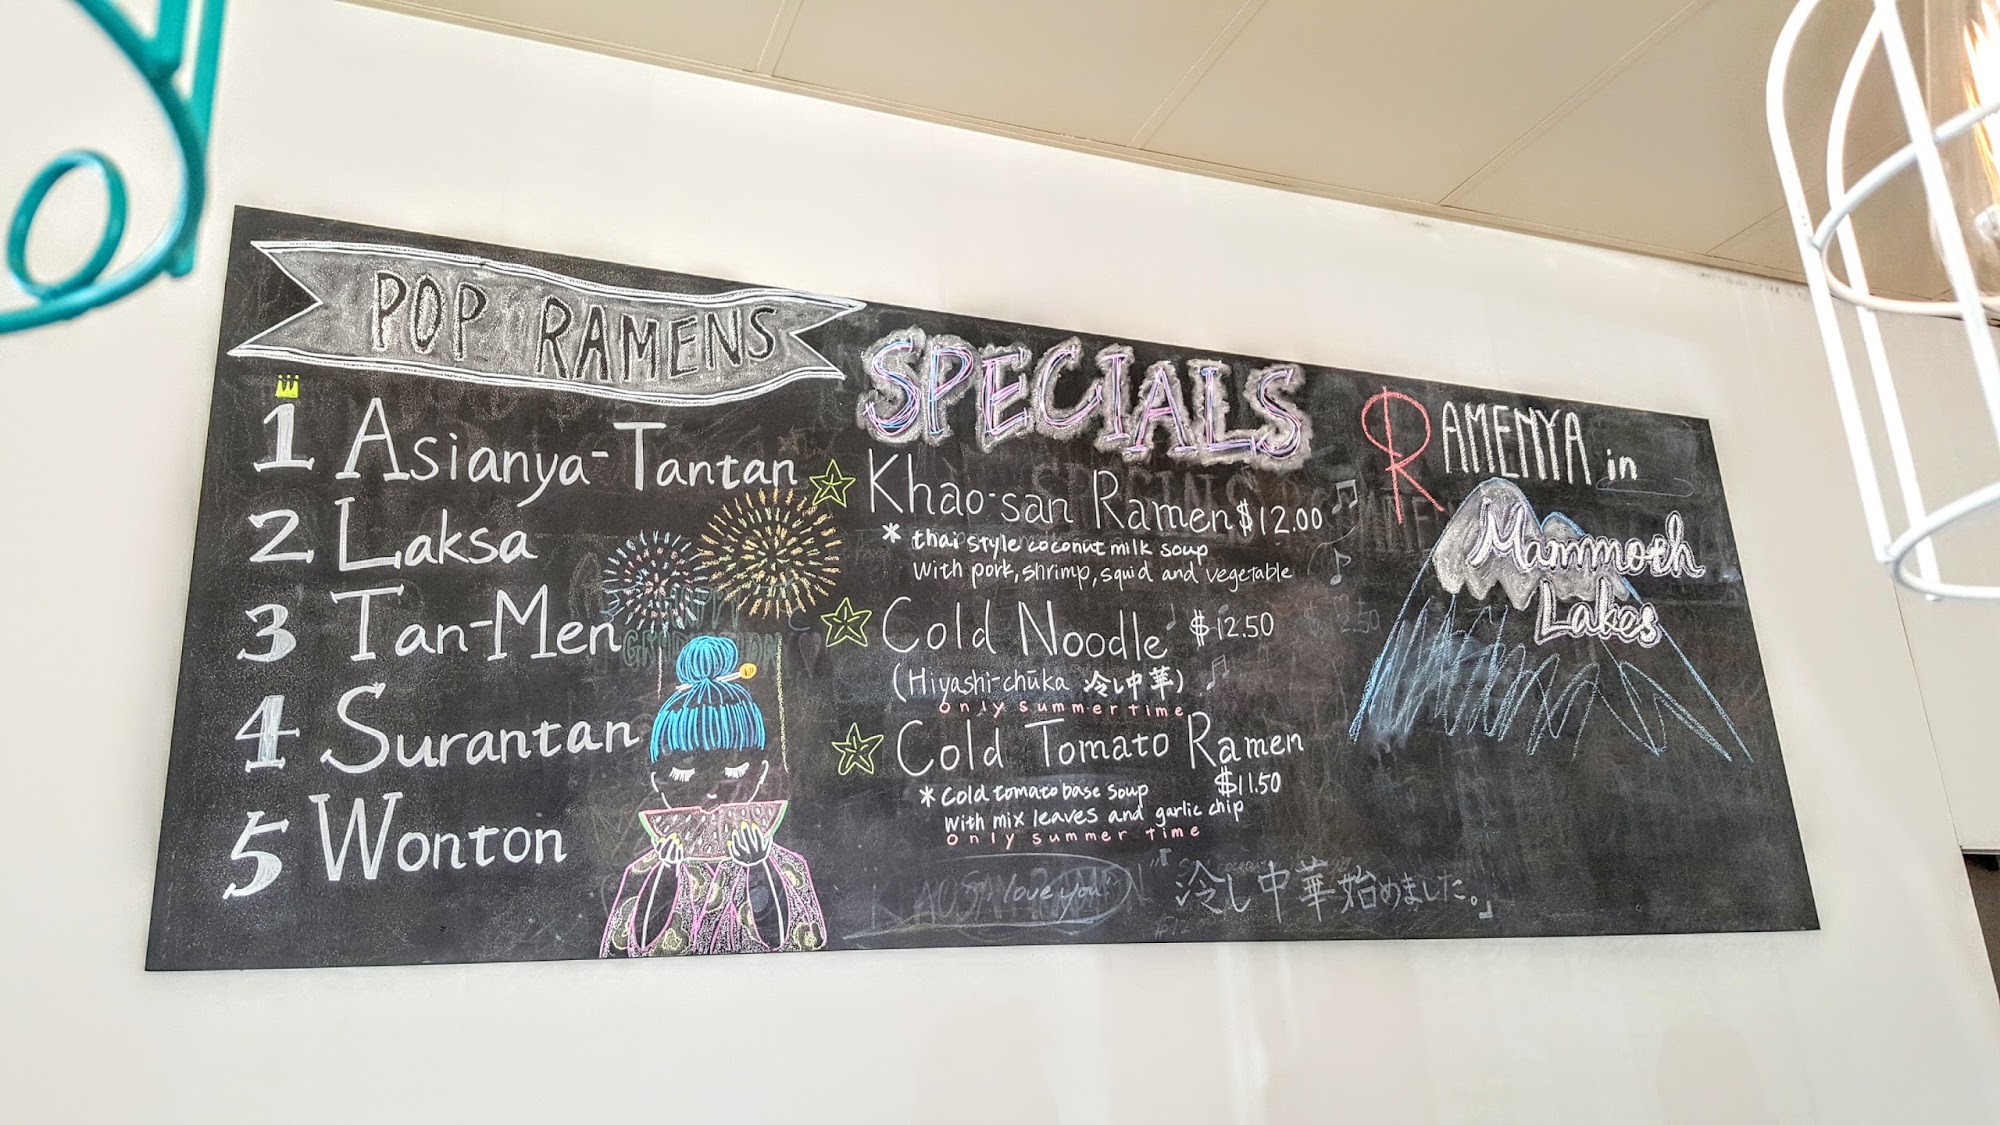 POP RAMENS
1 Asianya-Tantan
2 Laksa
3 Tan-Men
4 Surantan
5 Wonton
SPECIALS
Khao-san Ramen $12.00
* thai style coconut milk soup
with pork, shrimp, squid and vegetable
Cold Noodle $12.50
(Hiyashi-chūka 冷し中華)
only summer time
Cold Tomato Ramen
$11.50
* Cold tomato base soup
with mix leaves and garlic chip
only summer time
love you"
"冷し中華始めました。」
RAMENYA in
Mammoth
Lakes